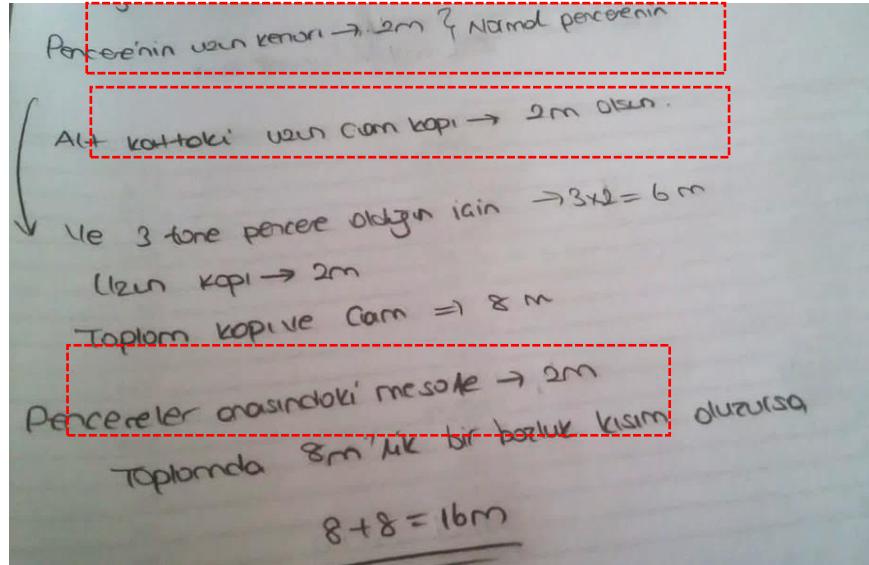 Pencere'nin uzun kenarı → 2m } Normal pencerenin
Alt kattaki uzun cam kapı → 2m olsun.
Ve 3 tane pencere olduğun için → 3x2 = 6 m
Uzun kapı → 2m
Toplam kapı ve Cam => 8 m
Pencereler arasındaki mesafe → 2m
Toplamda 8m'lik bir boşluk kısım oluzursa
8+8 = 16m